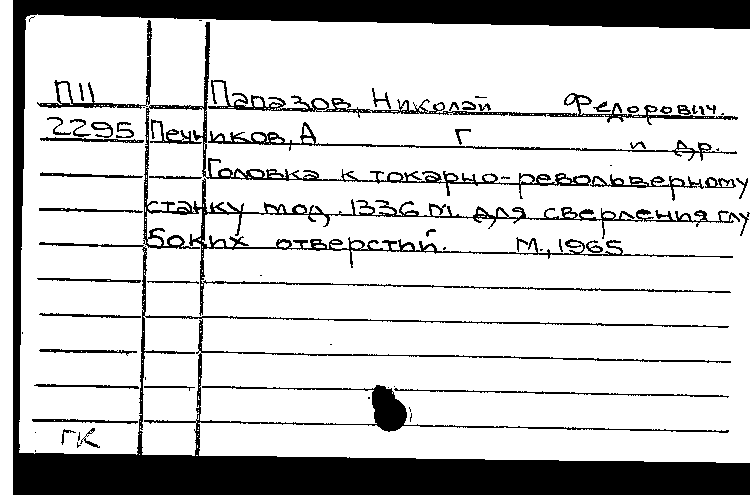 П11 Папазов, Николай Федорович.
2295 Печников, А Г и др.
Головка к токарно-револьверному
станку мод. 1336 М. для сверления глу
боких отверстий. М., 1965
ГК